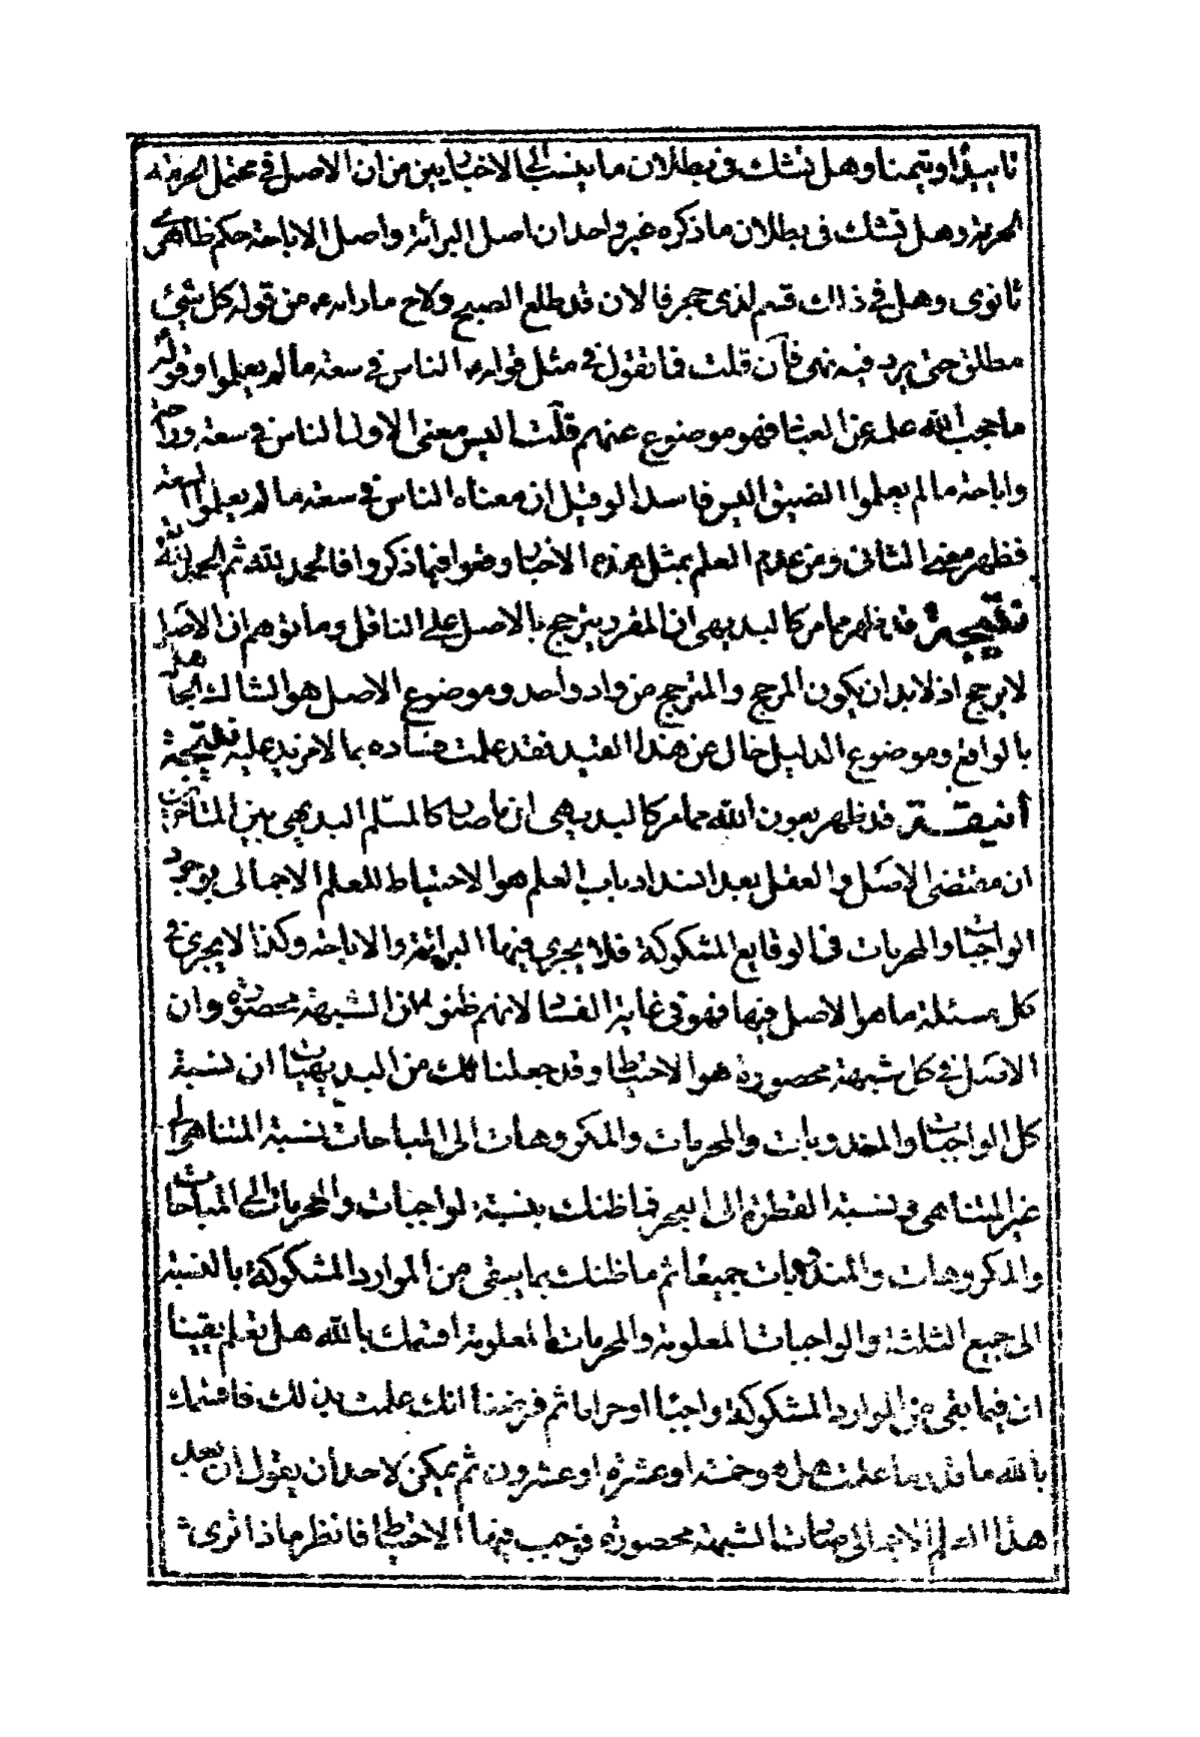 تاسيسا وتيمنا وهل تشك فى بطلان ما ينسب الى الاخباريين من ان الاصل فى محتمل الحرمة
الحرمة وهل تشك فى بطلان ما ذكره غير واحد ان اصل البرائة واصل الاباحة حكم ظاهرى
ثانوى وهل فى ذلك قسم لذى حجر فالان قد طلع الصبح ولاح ما رامه من قوله كل شئ
مطلق حتى يرد فيه نهى فان قلت فما تقول فى مثل قوله الناس فى سعة ما لم يعلموا وقوله
ما حجب الله علمه عن العباد فهو موضوع عنهم قلت اليس معنى الاول الناس فى سعة ورخصة
واباحة ما لم يعلموا الضيق اليس فاسدا لو قيل ان معناه الناس فى سعة ما لم يعلموا السعة
فظهر معنى الثانى ومن عدم العلم بمثل هذه الاخبار وقعوا فيما ذكروا فالحمد لله ثم الحمد لله
نتيجة قد ظهر مما مر كالبديهى ان المقرر يترجح بالاصل على الناقل وما توهم ان الاصل
لا يرجح اذ لا بد ان يكون المرجح والمترجح من واد واحد وموضوع الاصل هو الشاك الجاهل
بالواقع وموضوع الدليل خال عن هذا القيد فقد علمت فساده بما لا مزيد عليه نتيجة
أنيقة قد ظهر بعون الله مما مر كالبديهى ان ما صار كالمسلم البديهى بين المتأخرين
ان مقتضى الاصل والعقل بعد انسداد باب العلم هو الاحتياط للعلم الاجمالى بوجود
الواجبات والمحرمات فى الوقايع المشكوكة فلا يجرى فيها البرائة والاباحة وكذا لا يجرى فى
كل مسئلة ما هو الاصل فيها فهو فى غاية الفساد لانهم ظنوا ان الشبهة محصورة وان
الاصل فى كل شبهة محصورة هو الاحتياط وقد جعلنا لك من البديهيات ان نسبة
كل الواجبات والمندوبات والمحرمات والمكروهات الى المباحات نسبة المتناهى الى
غير المتناهى ونسبة القطرة الى البحر فما ظنك بنسبة لواجبات والمحرمات الى المباحات
والمكروهات والمندوبات جميعا ثم ما ظنك بما يبقى من الموارد المشكوكة بالنسبة
الى جميع الثلثة والواجبات المعلومة والمحرمات المعلومة اقسمك بالله هل تعلم يقينا
ان فيما بقى من الموارد المشكوكة واجبا او حراما ثم فرضنا انك علمت بذلك فاقسمك
بالله ما قدر ما علمت هل هو خمسة او عشرة او عشرون ثم يمكن لاحد ان يقول ان بعد
هذا العلم الاجمالى صارت الشبهة محصورة فوجب فيها الاحتياط فانظر ماذا ترى